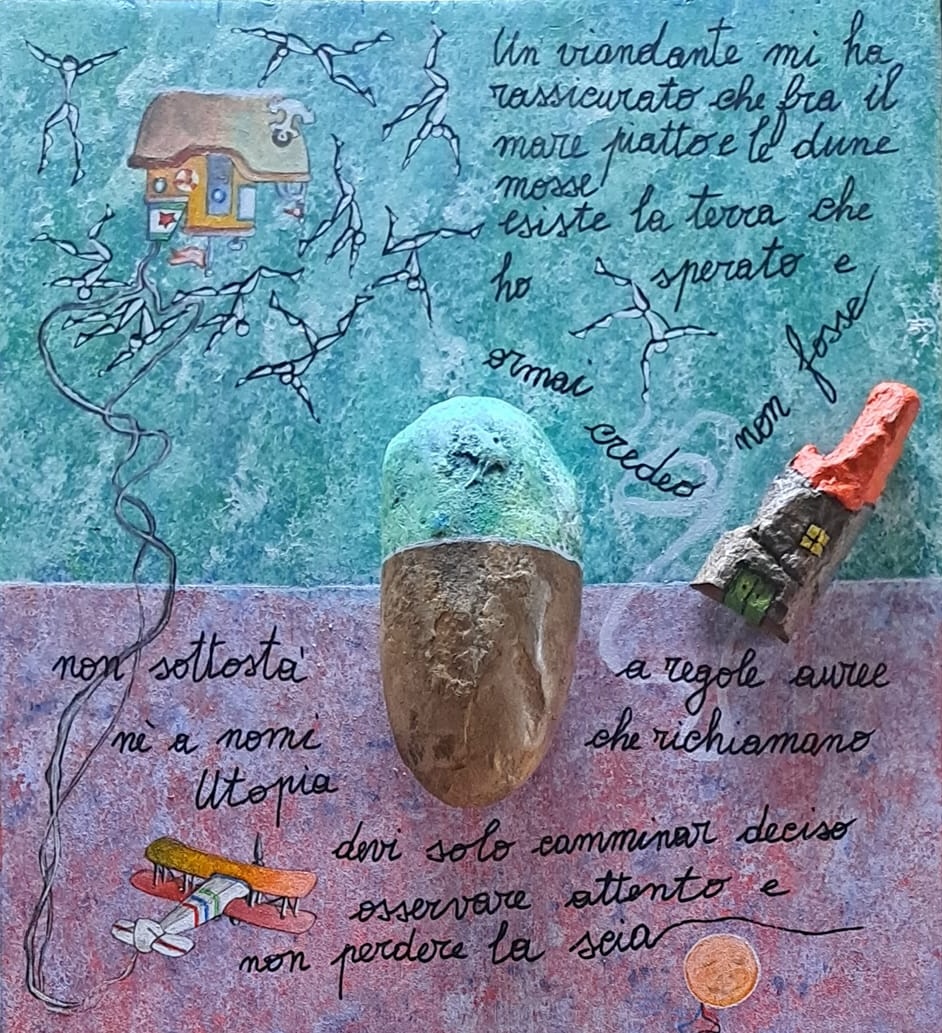 Un viandante mi ha
rassicurato che fra il
mare piatto e le dune
mosse
esiste la terra che
ho sperato e
ormai credeo non fosse
non sottostà a regole auree
nè a nomi che richiamano
Utopia
devi solo camminar deciso
osservare attento e
non perdere la scia